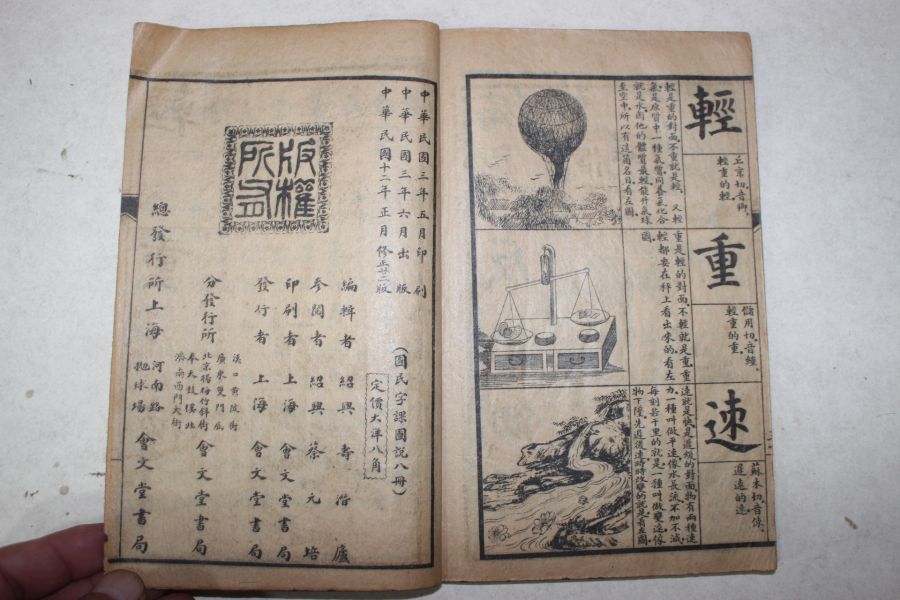 輕
丘京切.音卿.
輕重的輕
輕是重的對面.不重就是輕.又輕
氣是原質中一種氣質.同養氣化合
就是水.因他的體質最輕.能升氣球
至空中.所以有這箇名目.看左圖.
重
儲用切.音緟.
輕重的重.
重是輕的對面.不輕就是重.輕重
都要在秤上看出來的.看左
圖.
速
蘇木切.音倲.
遲速的速
速就是快.是遲緩的對面.物有兩種速
力.一種叫做平速.像水長流不加不減.
每刻若干里的就是.一種叫做變速.像
物下墜.先遲後速.時時改變的就是.看左圖.
中華民國三年五月印刷
中華民國三年六月出版
中華民國十二年正月修正廿二版
版權
所有
(國民字課圖說八冊)
定價大洋八角
編輯者 紹興 壽潛廬
參閱者 紹興 蔡元培
印刷者 上海 會文堂書局
發行者 上海 會文堂書局
分發行所
漢口黃陂街
廣東雙門底
北京楊梅竹斜街
奉天鼓樓北
濟南西門大街
會文堂書局
總發行所上海
河南路
拋球場
會文堂書局